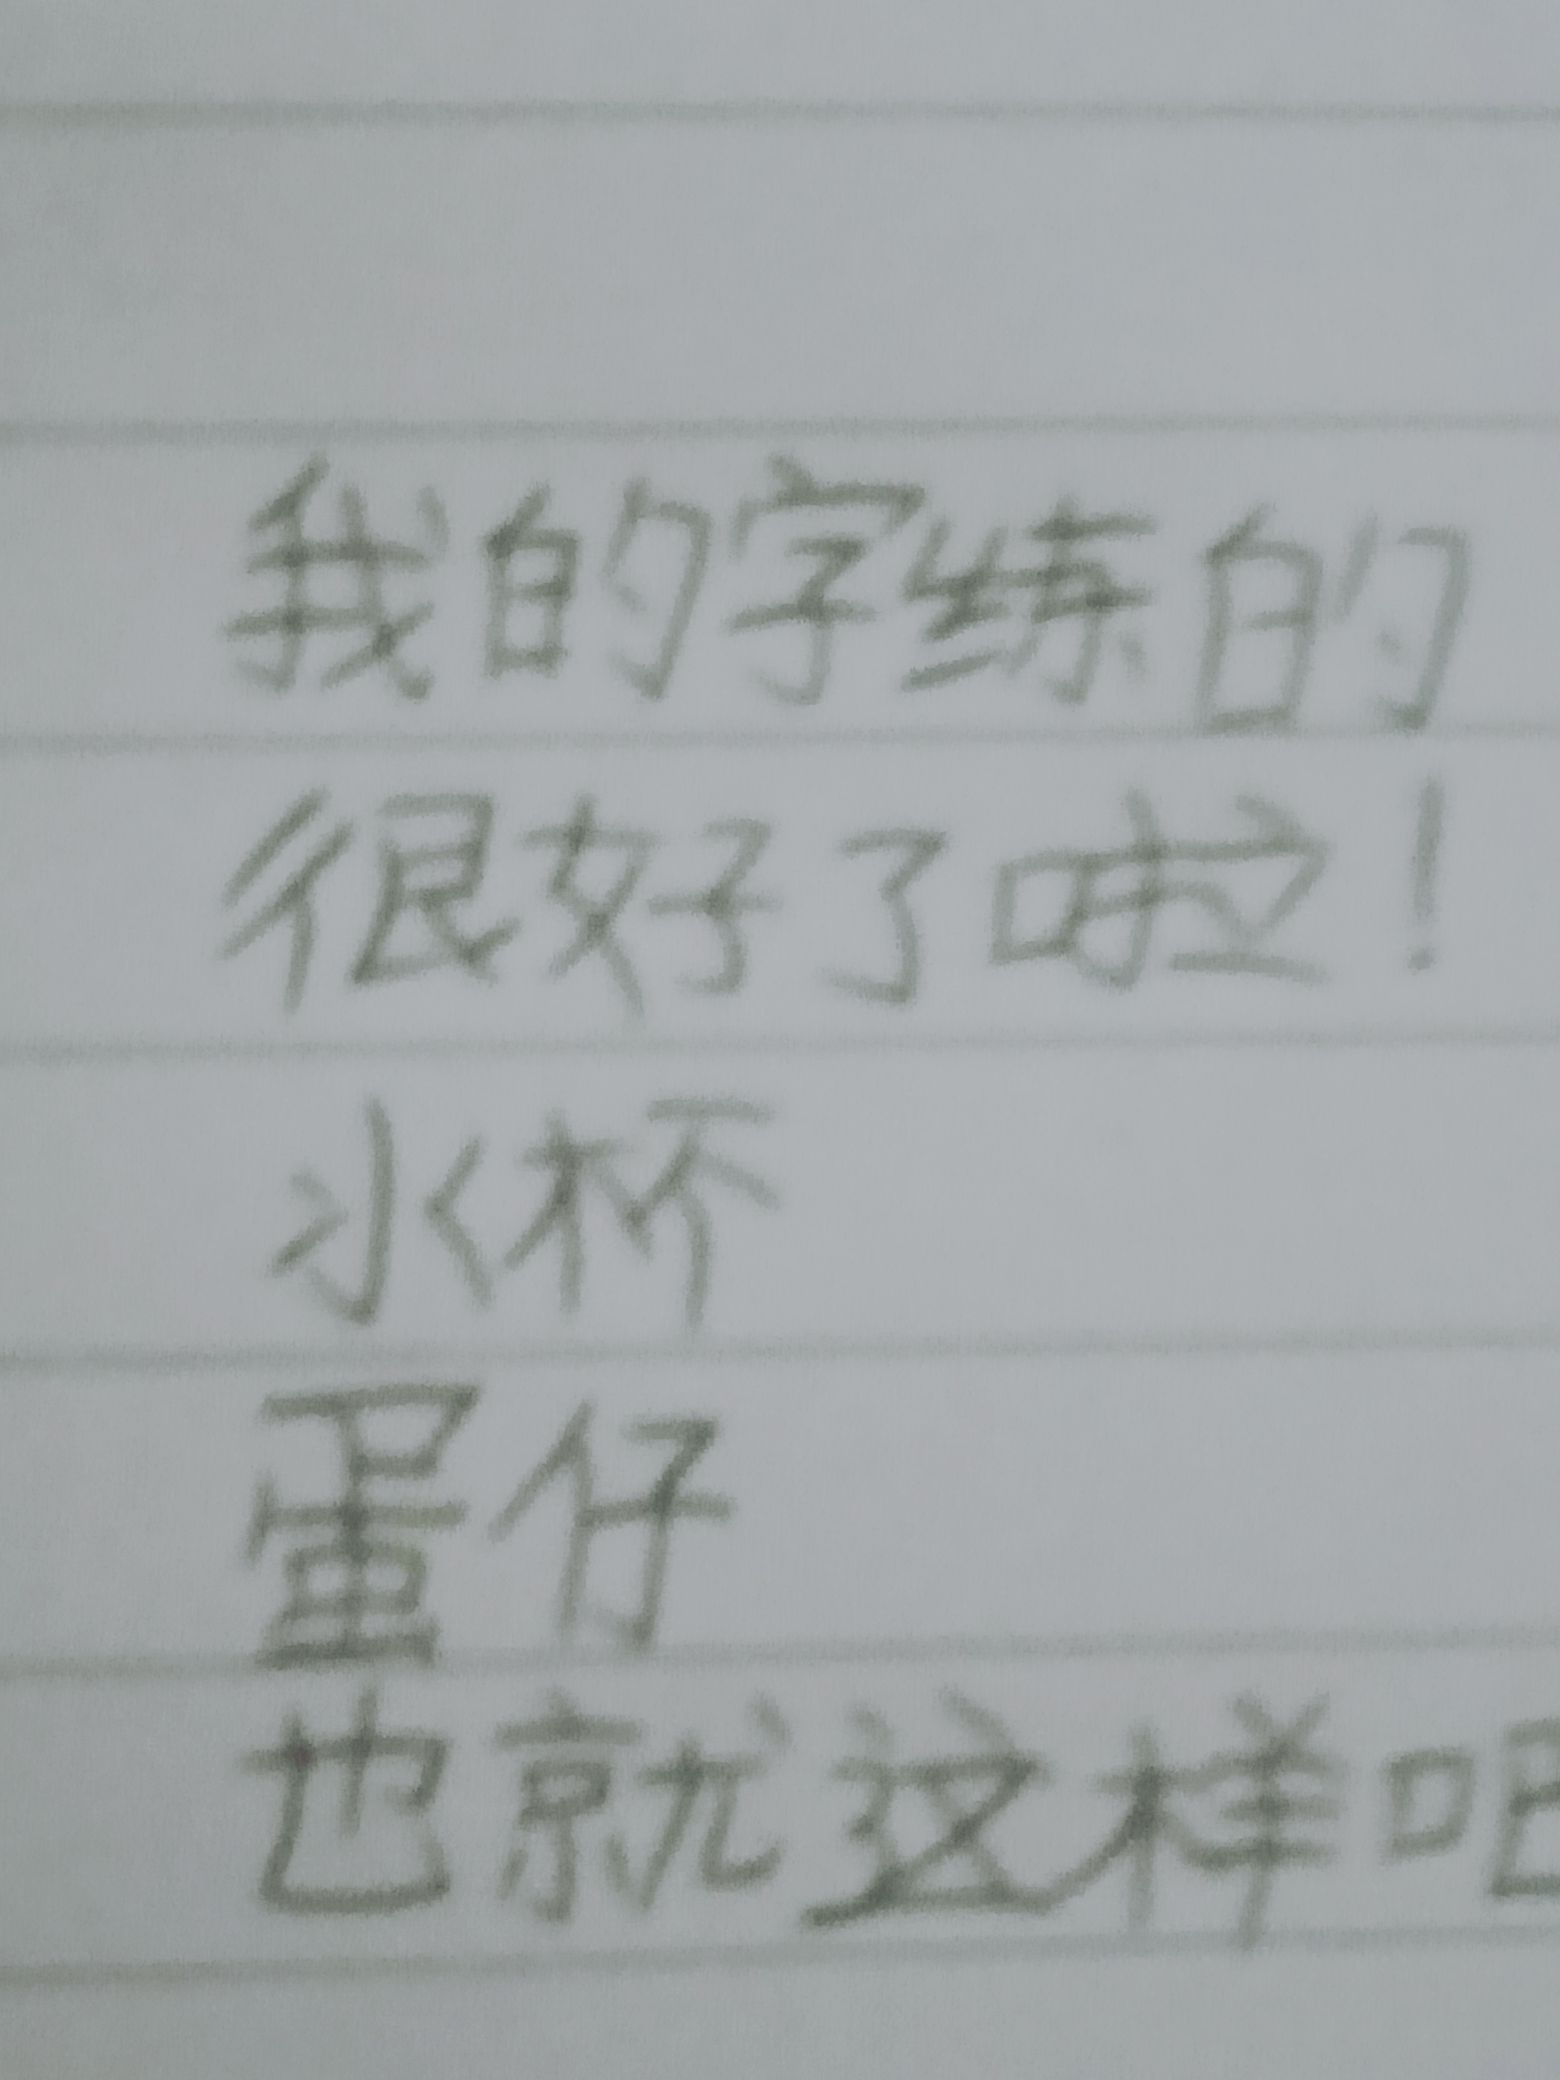 我的字练的
很好了啦！
水杯
蛋仔
也就这样吧